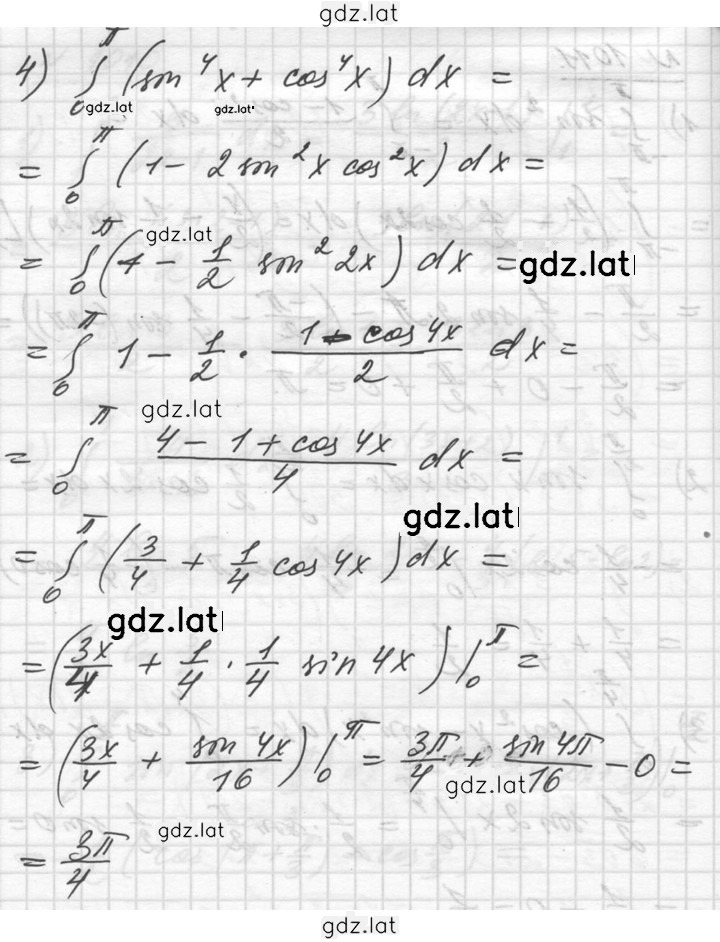 gdz.lat
4) ∫₀^π (sin⁴x + cos⁴x) dx =
gdz.lat gdz.lat
= ∫₀^π (1 - 2 sin²x cos²x) dx =
gdz.lat
= ∫₀^π (1 - 1/2 sin²2x) dx =
gdz.lat
= ∫₀^π 1 - 1/2 · (1 - cos 4x)/2 dx =
gdz.lat
= ∫₀^π (4 - 1 + cos 4x)/4 dx =
gdz.lat
= ∫₀^π (3/4 + 1/4 cos 4x) dx =
gdz.lat
= (3x/4 + 1/4 · 1/4 sin 4x) |₀^π =
= (3x/4 + sin 4x/16) |₀^π = 3π/4 + sin 4π/16 - 0 =
gdz.lat
gdz.lat
= 3π/4
gdz.lat